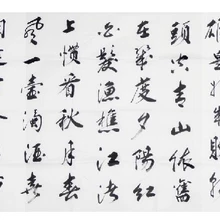 頭空青山依舊
在幾度夕陽紅
白髮漁樵江渚
上慣看秋月春
風一壺濁酒喜